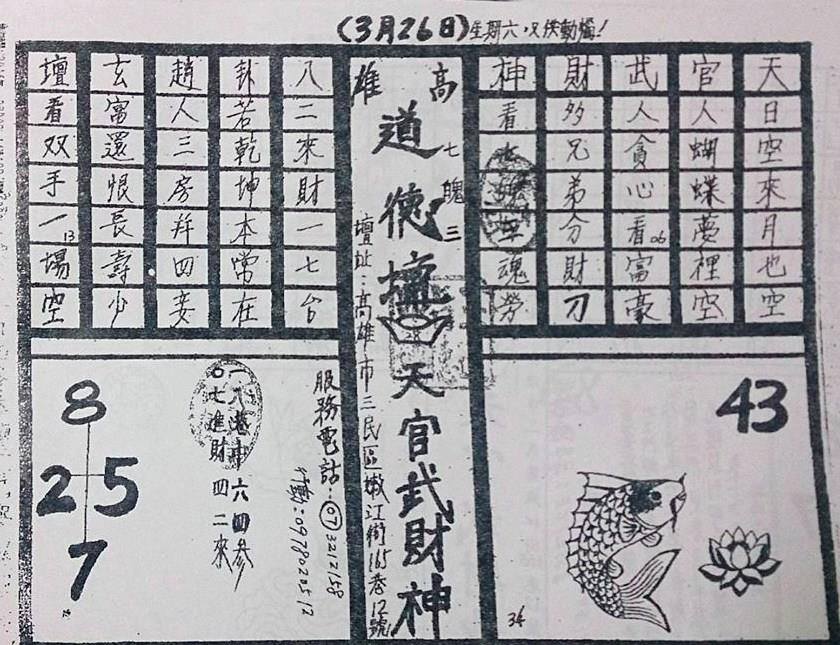 (3月26日)星期六,又供動惱!
天日空來月也空
官人蝴蝶夢裡空
武人貪心看富豪
06
財多兄弟分財刀
神看魂勞
高雄
道德壇
七魄三
天官武財神
壇址:高雄市三民區嫩江街165巷12號
八二來財一七台
卦若乾坤本常在
趙人三房四妾
玄富還恨長壽少
壇看双手一場空
13
43
34
服務電話:(07)3212158
行動:
一八港中 六四參
0七進財 四二來
8
2 5
7